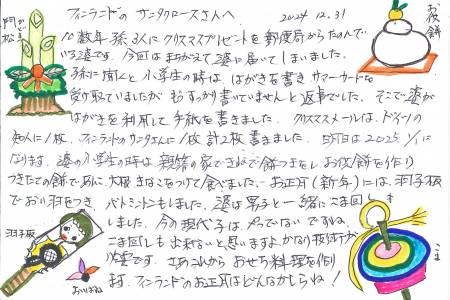 フィンランドのサンタクロースさんへ 2024.12.31
お役餅
門松
かどまつ
10数年孫3人にクリスマスプレゼントを郵便局からたのんで
いる婆です。今回はまちがえて婆に届いてしまいました。
孫に聞くと小学生の時は、はがきを書きサマーカードを
受け取ていましたがもうすっかり書いていませんと返事でした。そこで婆が
はがきを利用して手紙を書きました。クリスマスメールは、ドイツの
知人に1枚、フィンランドのサンタさんに1枚計2枚書きました。明日は2025 1/1に
なります。婆の小学生の時は親籍の家できねで餅つきをしお役餅を作り
つきたての餅であんこ、大根きなこをつけて食べました。お正月(新年)には、羽子板
でおい羽をつき、バトミントンもしました。婆は男子と一緒にこま回しも
しました。今の現代子はやってないですね
こま回しも出来ないと思いますよ。かなり技術が
必要です。さあこれからおせち料理を作り
ます。フィンランドのお正月はどんなかしらね!
羽子板
おいばね
こま